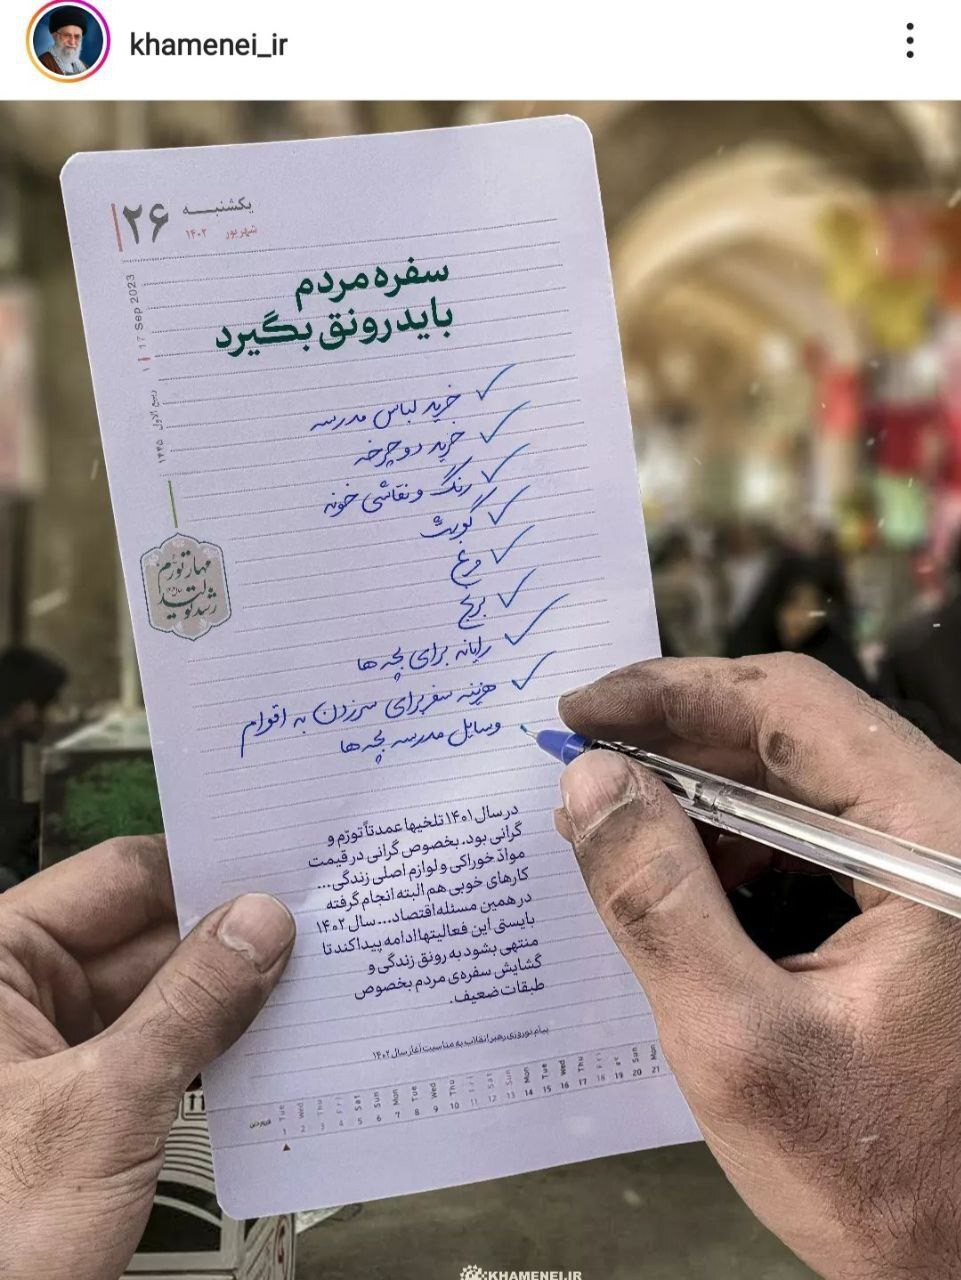 khamenei_ir
۲۶
یکشنبـــه
شهریور ۱۴۰۲
17 Sep 2023
۱ ربیع الاول ۱۴۴۵
سفره مردم
باید رونق بگیرد
خرید لباس مدرسه
خرید دوچرخه
رنگ و نقاشی خونه
گوشت
مرغ
برنج
رایانه برای بچه ها
هزینه سفر برای سرزدن به اقوام
وسایل مدرسه بچه ها
مهار تورّم
رشد تولید
در سال ۱۴۰۱ تلخیها عمدتاً تورّم و
گرانی بود. بخصوص گرانی در قیمت
موادّ خوراکی و لوازم اصلی زندگی...
کارهای خوبی هم البته انجام گرفته
در همین مسئله اقتصاد... سال ۱۴۰۲
بایستی این فعالیتها ادامه پیدا کند تا
منتهی بشود به رونق زندگی و
گشایش سفره‌ی مردم بخصوص
طبقات ضعیف.
پیام نوروزی رهبر انقلاب به مناسبت آغاز سال ۱۴۰۲
فروردین
Tue Wed Thu Fri Sat Sun Mon Tue Wed Thu Fri Sat Sun Mon Tue Wed Thu Fri Sun Mon
1 2 3 4 5 6 7 8 9 10 11 12 13 14 15 16 17 18 19 20 21
KHAMENEI.IR